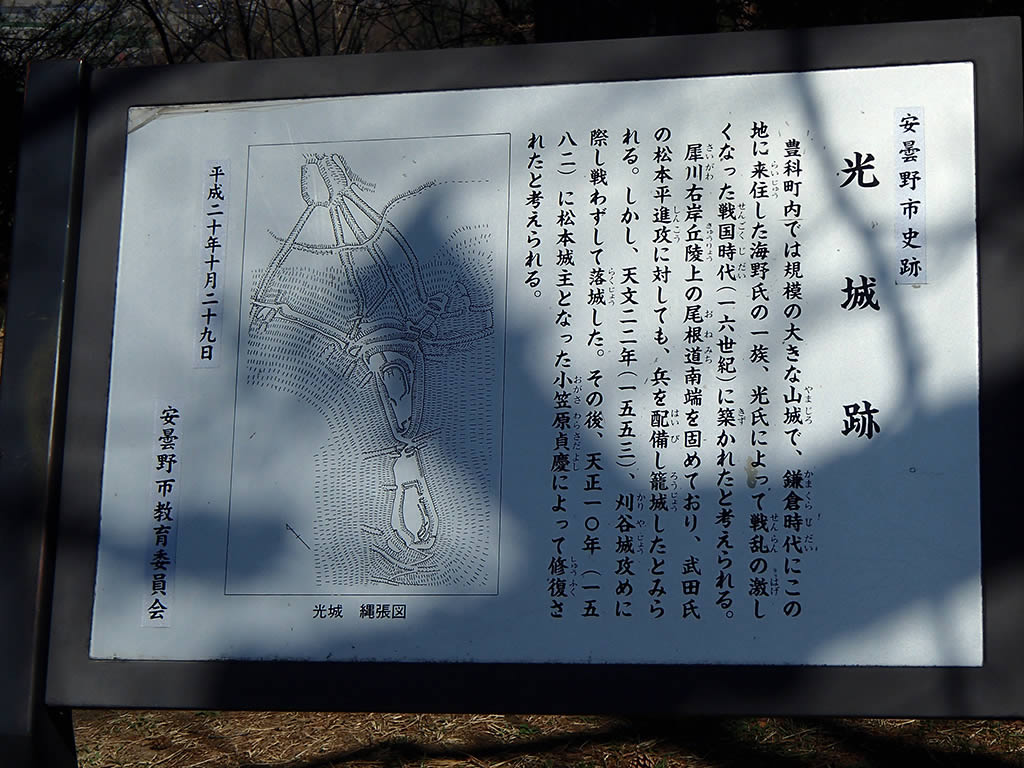 安曇野市史跡
光城跡
豊科町内では規模の大きな山城で、鎌倉時代にこの
地に来住した海野氏の一族、光氏によって戦乱の激し
くなった戦国時代(一六世紀)に築かれたと考えられる。
犀川右岸丘陵上の尾根道南端を固めており、武田氏
の松本平進攻に対しても、兵を配備し籠城したとみら
れる。しかし、天文二二年(一五五三)、刈谷城攻めに
際し戦わずして落城した。その後、天正一〇年(一五
八二)に松本城主となった小笠原貞慶によって修復さ
れたと考えられる。
光城 縄張図
平成二十年十月二十九日
安曇野市教育委員会